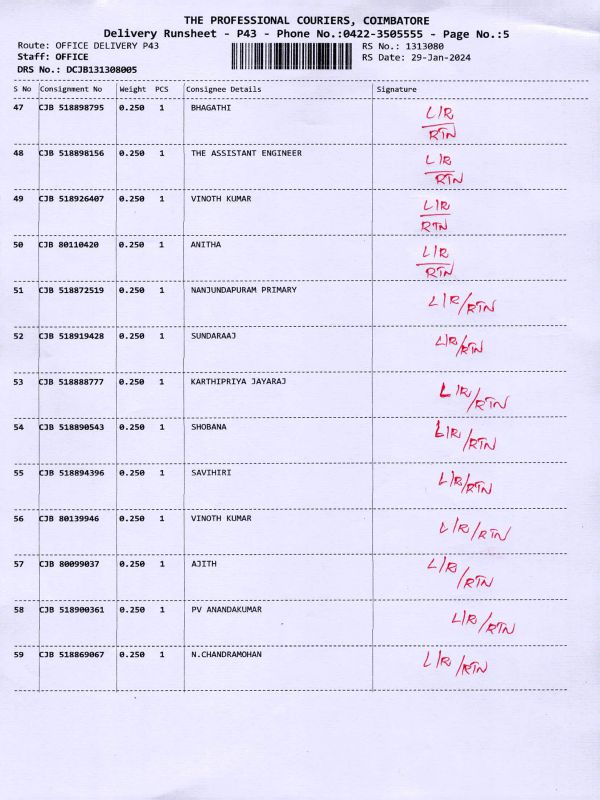 THE PROFESSIONAL COURIERS, COIMBATORE
Delivery Runsheet - P43 - Phone No.:0422-3505555 - Page No.:5
Route: OFFICE DELIVERY P43 RS No.: 1313080
Staff: OFFICE RS Date: 29-Jan-2024
DRS No.: DCJB131308005
S No Consignment No Weight PCS Consignee Details Signature
47 CJB 518898795 0.250 1 BHAGATHI L/R
RTN
48 CJB 518898156 0.250 1 THE ASSISTANT ENGINEER L/R
RTN
49 CJB 518926407 0.250 1 VINOTH KUMAR L/R
RTN
50 CJB 80110420 0.250 1 ANITHA L/R
RTN
51 CJB 518872519 0.250 1 NANJUNDAPURAM PRIMARY L/R/RTN
52 CJB 518919428 0.250 1 SUNDARAAJ L/R/RTN
53 CJB 518888777 0.250 1 KARTHIPRIYA JAYARAJ L/R/RTN
54 CJB 518890543 0.250 1 SHOBANA L/R/RTN
55 CJB 518894396 0.250 1 SAVIHIRI L/R/RTN
56 CJB 80139946 0.250 1 VINOTH KUMAR L/R/RTN
57 CJB 80099037 0.250 1 AJITH L/R/RTN
58 CJB 518900361 0.250 1 PV ANANDAKUMAR L/R/RTN
59 CJB 518869067 0.250 1 N.CHANDRAMOHAN L/R/RTN